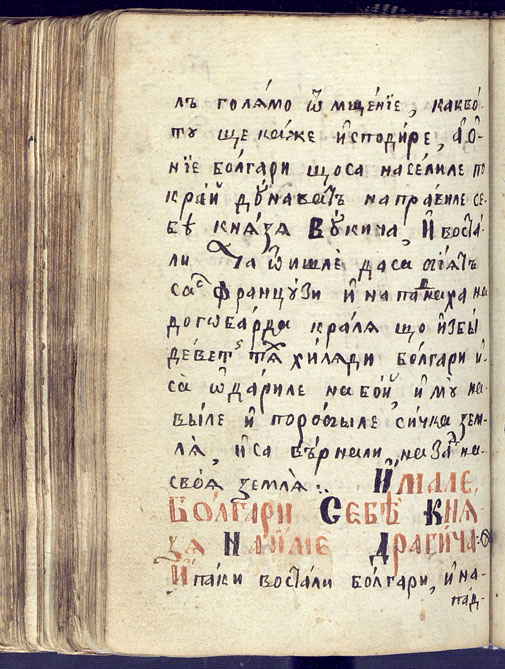 лъ голѧ́мо ѿмщéнїе, каквó-
ту ще кáже и҆споди́ре, а҆ ѻ҆-
нїе бóлгари щоса насéлиле по
край дꙋ́навать направиле се-
бѣ кнѧ́за Вꙋ́кича, И҆ восто́-
ли да ѿишлѐ даса бїѧ́тъ
са францꙋзи и҆ нападнаха на
логобарда кралѧ що и҆збы́
деветь стѫ хи́лѧди болгари и҆
сѐ ѹ҆дариле на бой, и҆мꙋ на-
вы́ле и҆ поро́быле сичка зем-
лѧ̀, и҆са вꙗ́рнали назад на-
своѧ̀ землѧ̀ ⁘ И҆мале
Бóлгари Себѣ̀ Кнѧ-
зѧ На и҆́мїе Драги́ча
И҆ паки востали бóлгари, и҆ на-
пад-